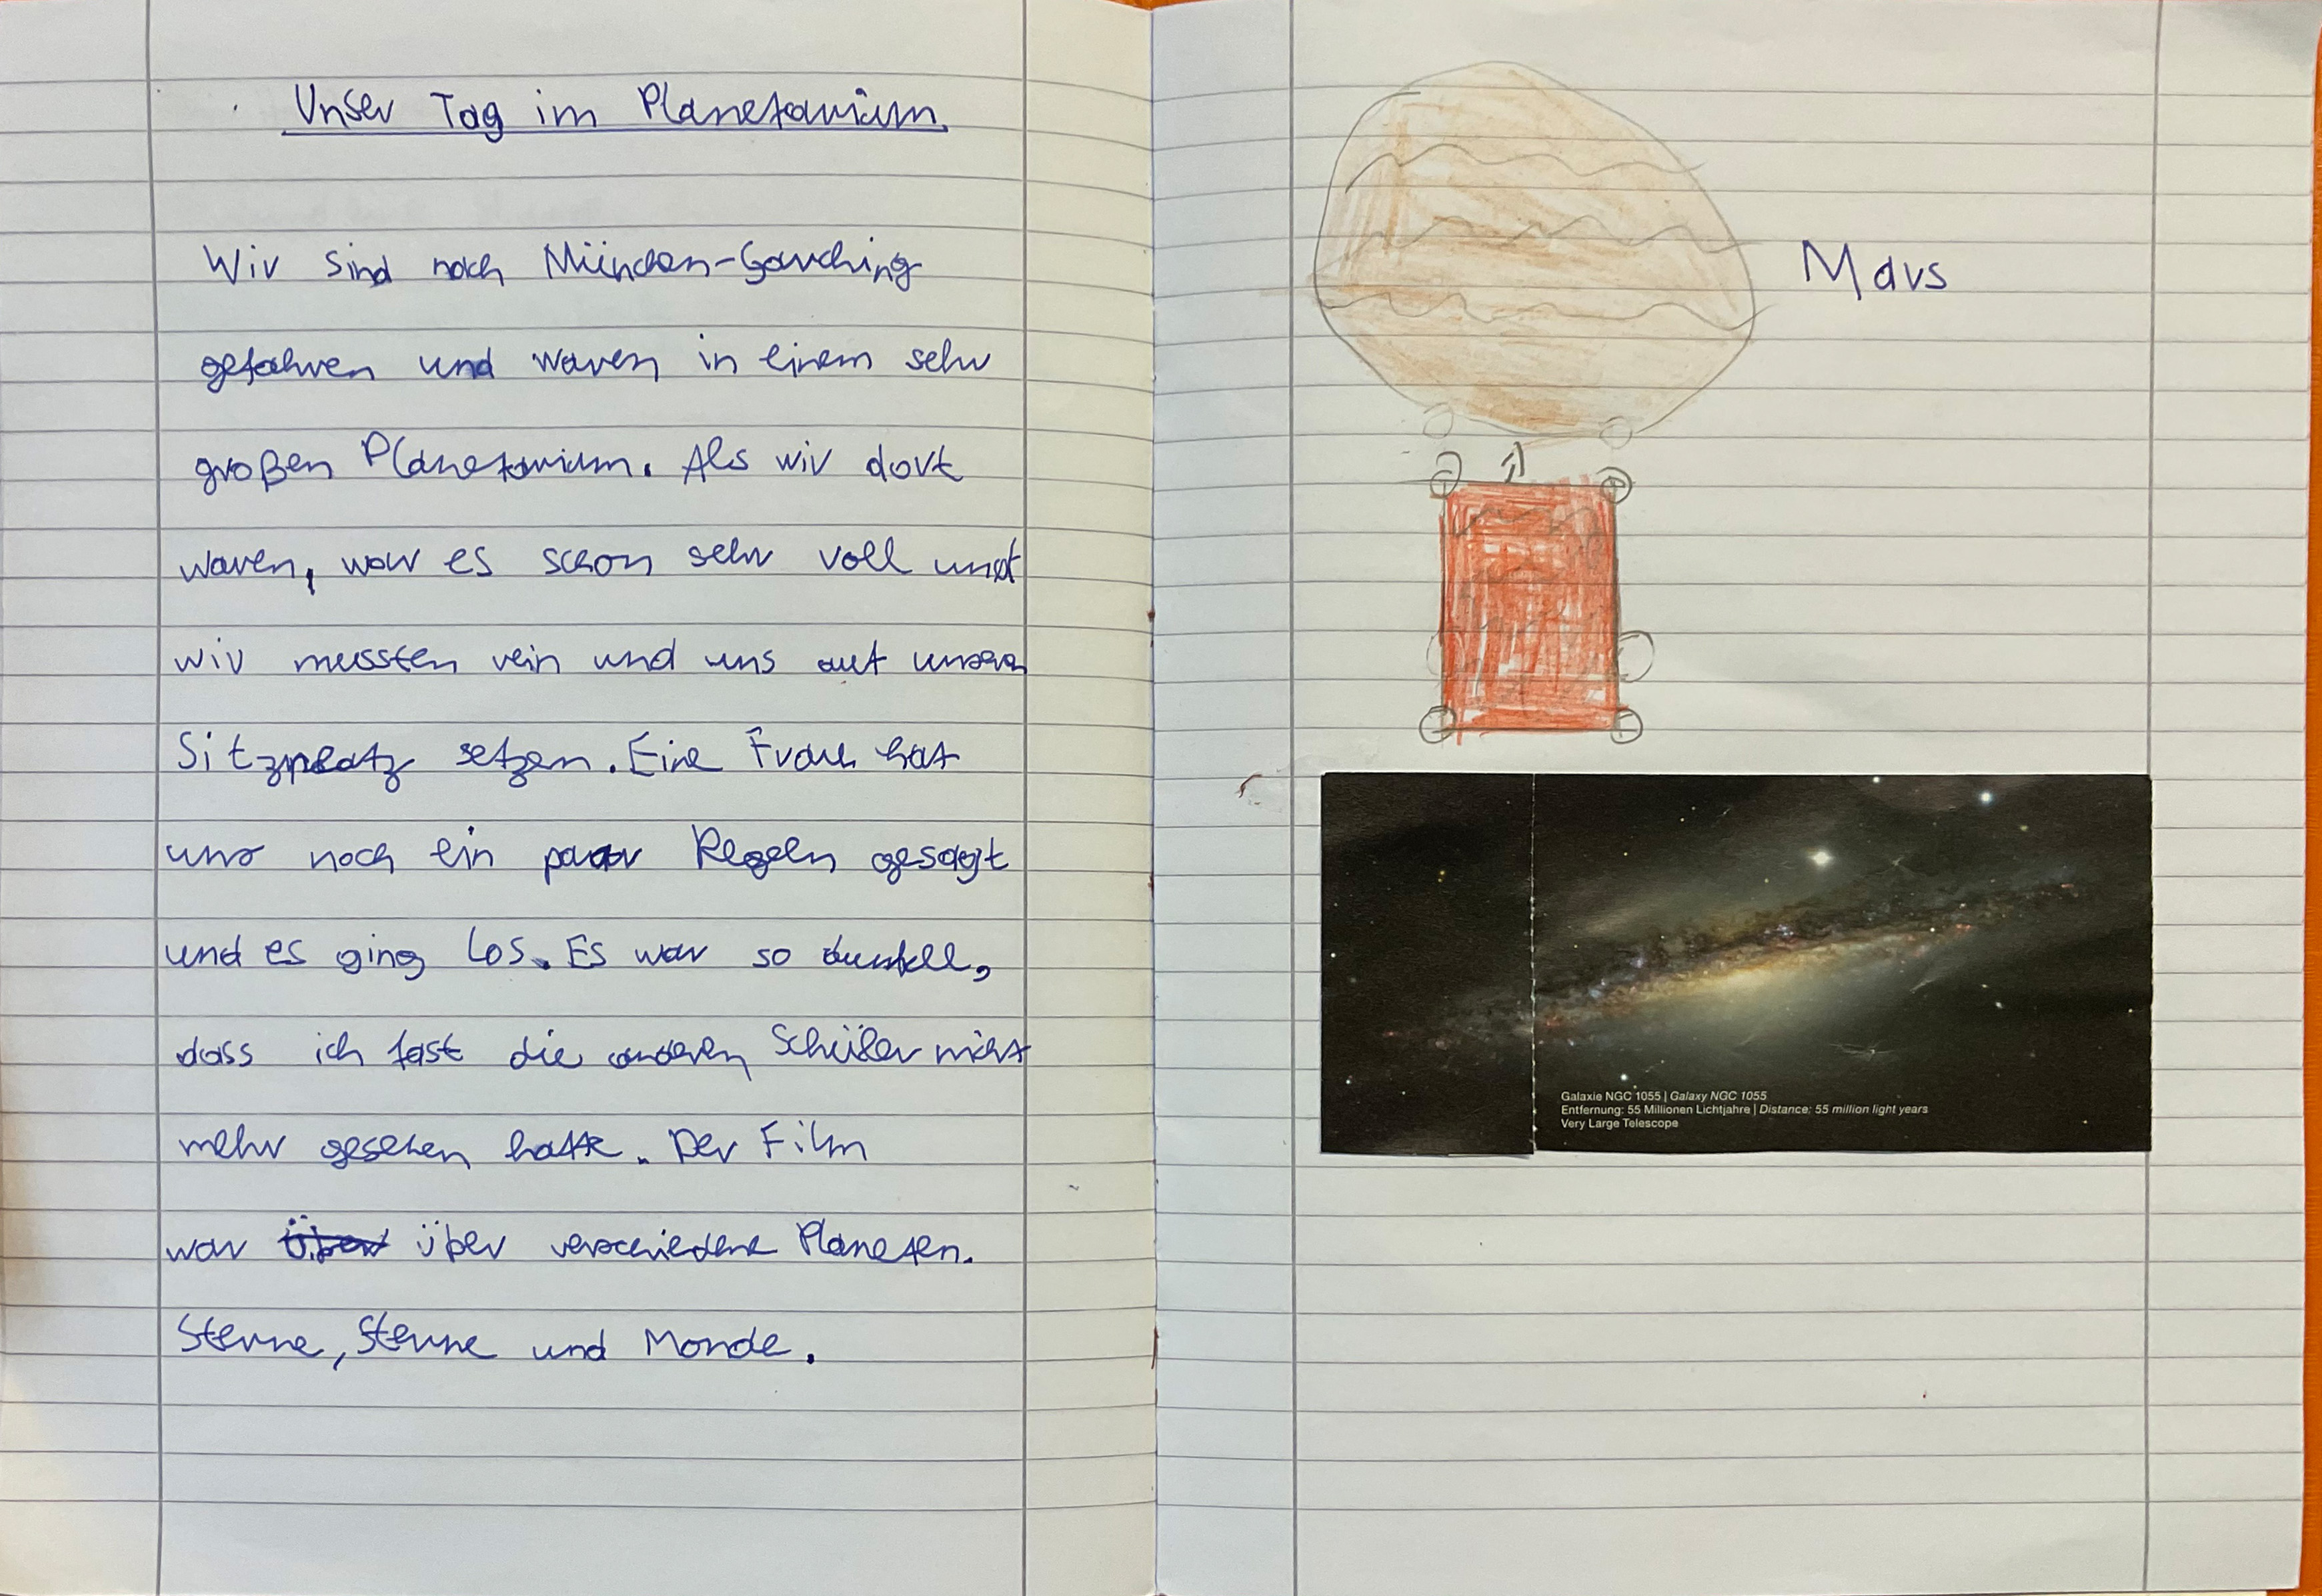 Unser Tag im Planetarium
Wir sind nach München-Garching
gefahren und waren in einem sehr
großen Planetarium. Als wir dort
waren, war es schon sehr voll und
wir mussten rein und uns auf unseren
Sitzplatz setzen. Eine Frau hat
uns noch ein paar Regeln gesagt
und es ging los. Es war so dunkell,
dass ich fast die anderen Schüler nicht
mehr gesehen hatte. Der Film
war über verschiedene Planeten.
Sterne, Sterne und Monde.
Mars
Galaxie NGC 1055 | Galaxy NGC 1055
Entfernung: 55 Millionen Lichtjahre | Distance: 55 million light years
Very Large Telescope